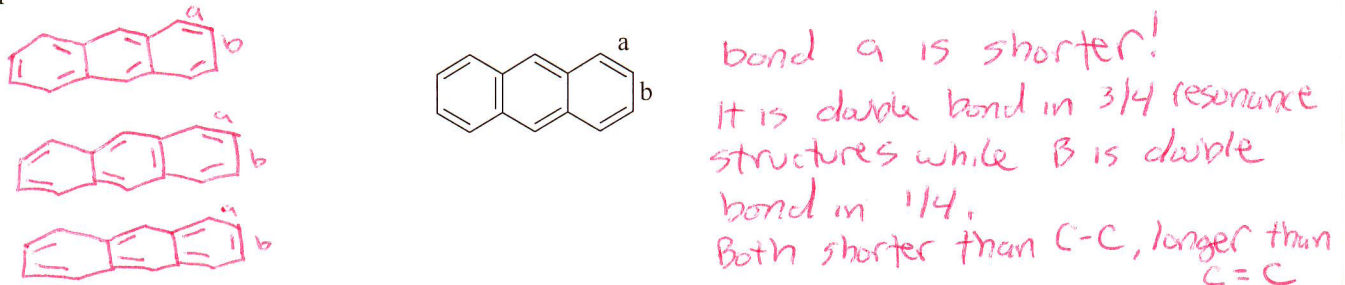 a
b
a
b
a
b
a
b
bond a is shorter!
It is double bond in 3/4 resonance
structures while B is double
bond in 1/4.
Both shorter than C-C, longer than
C=C